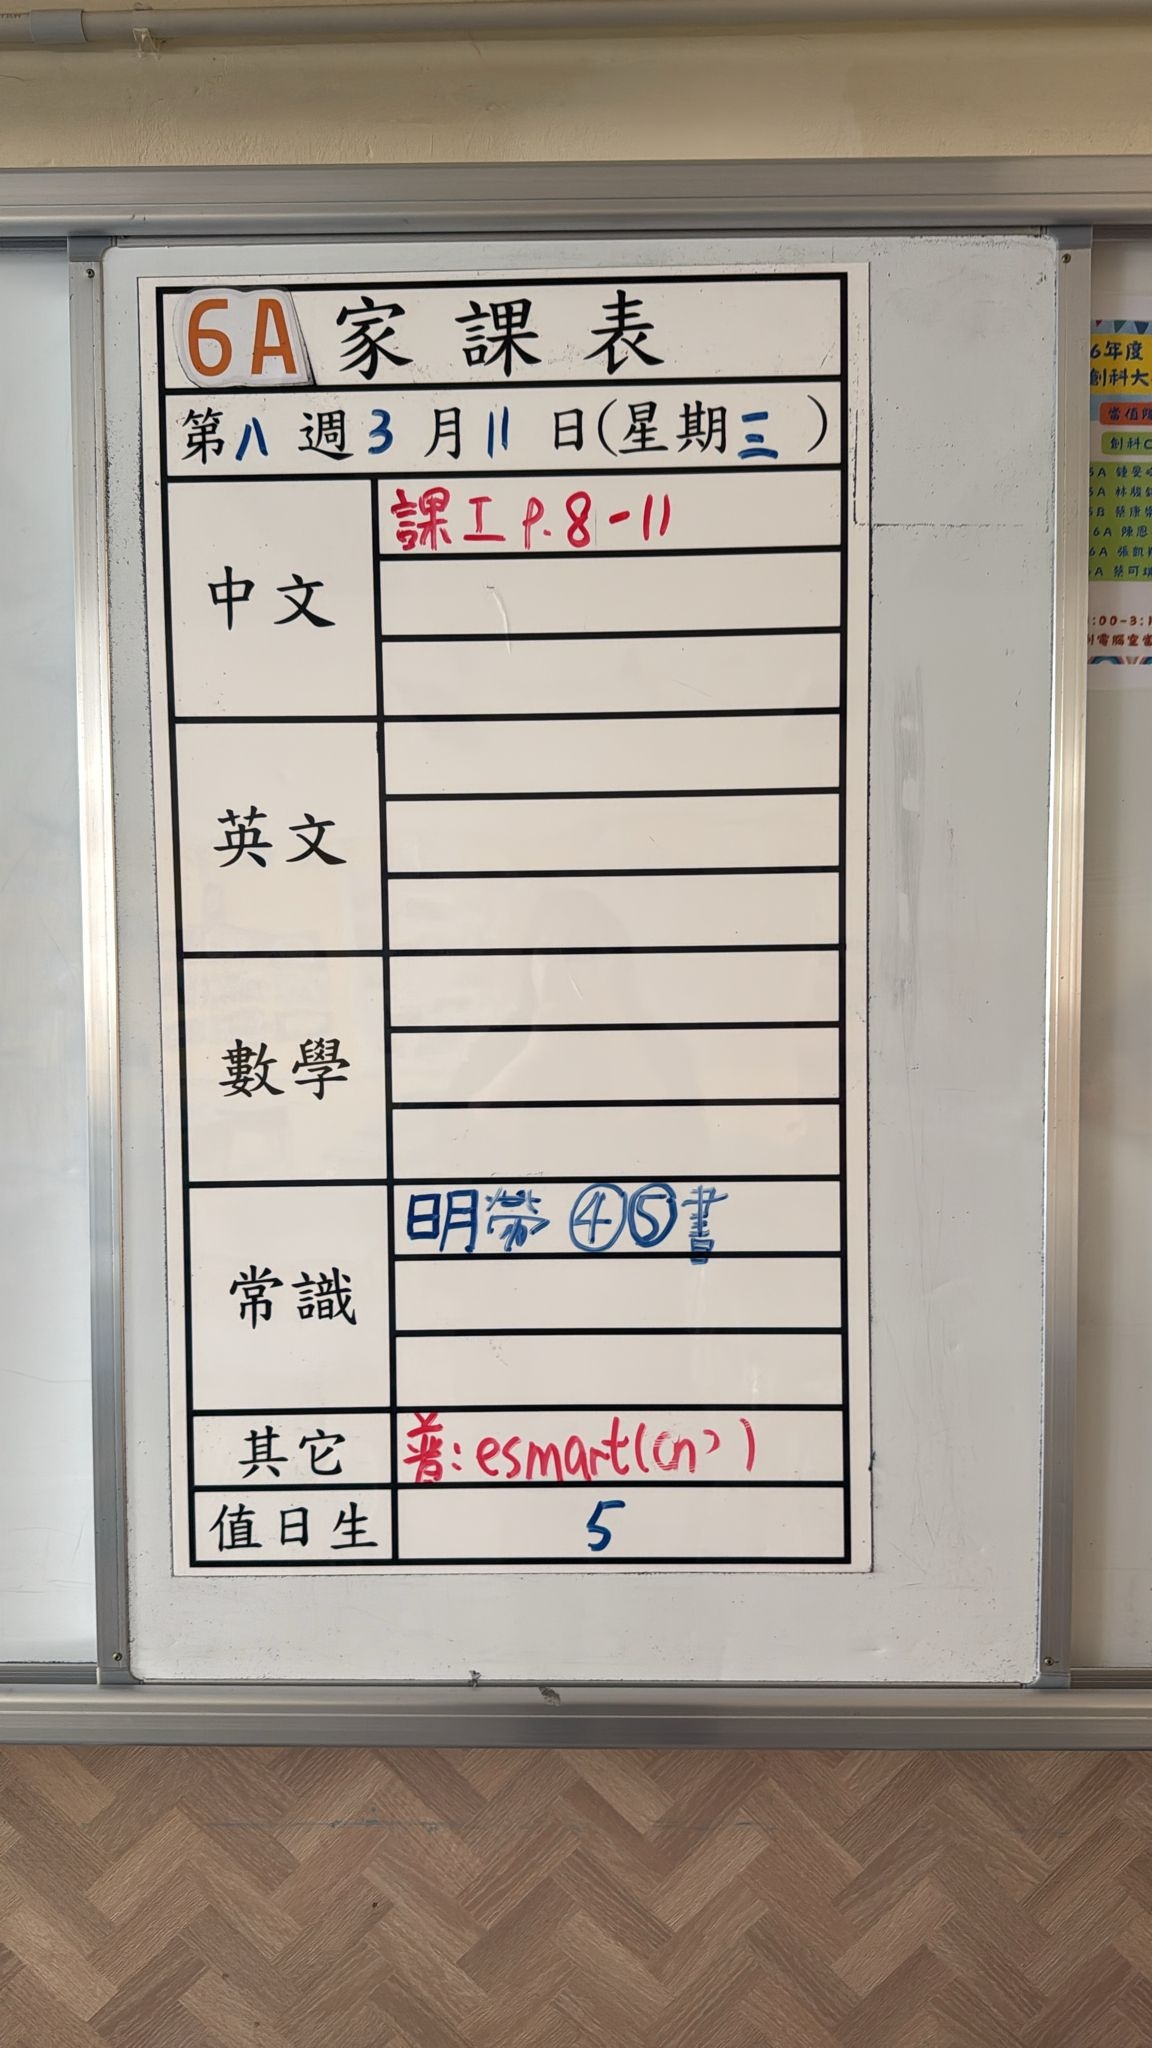 6A 家課表
第八週3月11日(星期三)
中文
課工 p.8-11
英文
數學
常識
明帶 ④⑤書
其它
普: esmart(
值日生
5
6年度
創科大
當值
創科C
林駿
6B 蔡康
6A 陳恩
6A 張凱
A 蔡可
:00-3:1
電腦室當